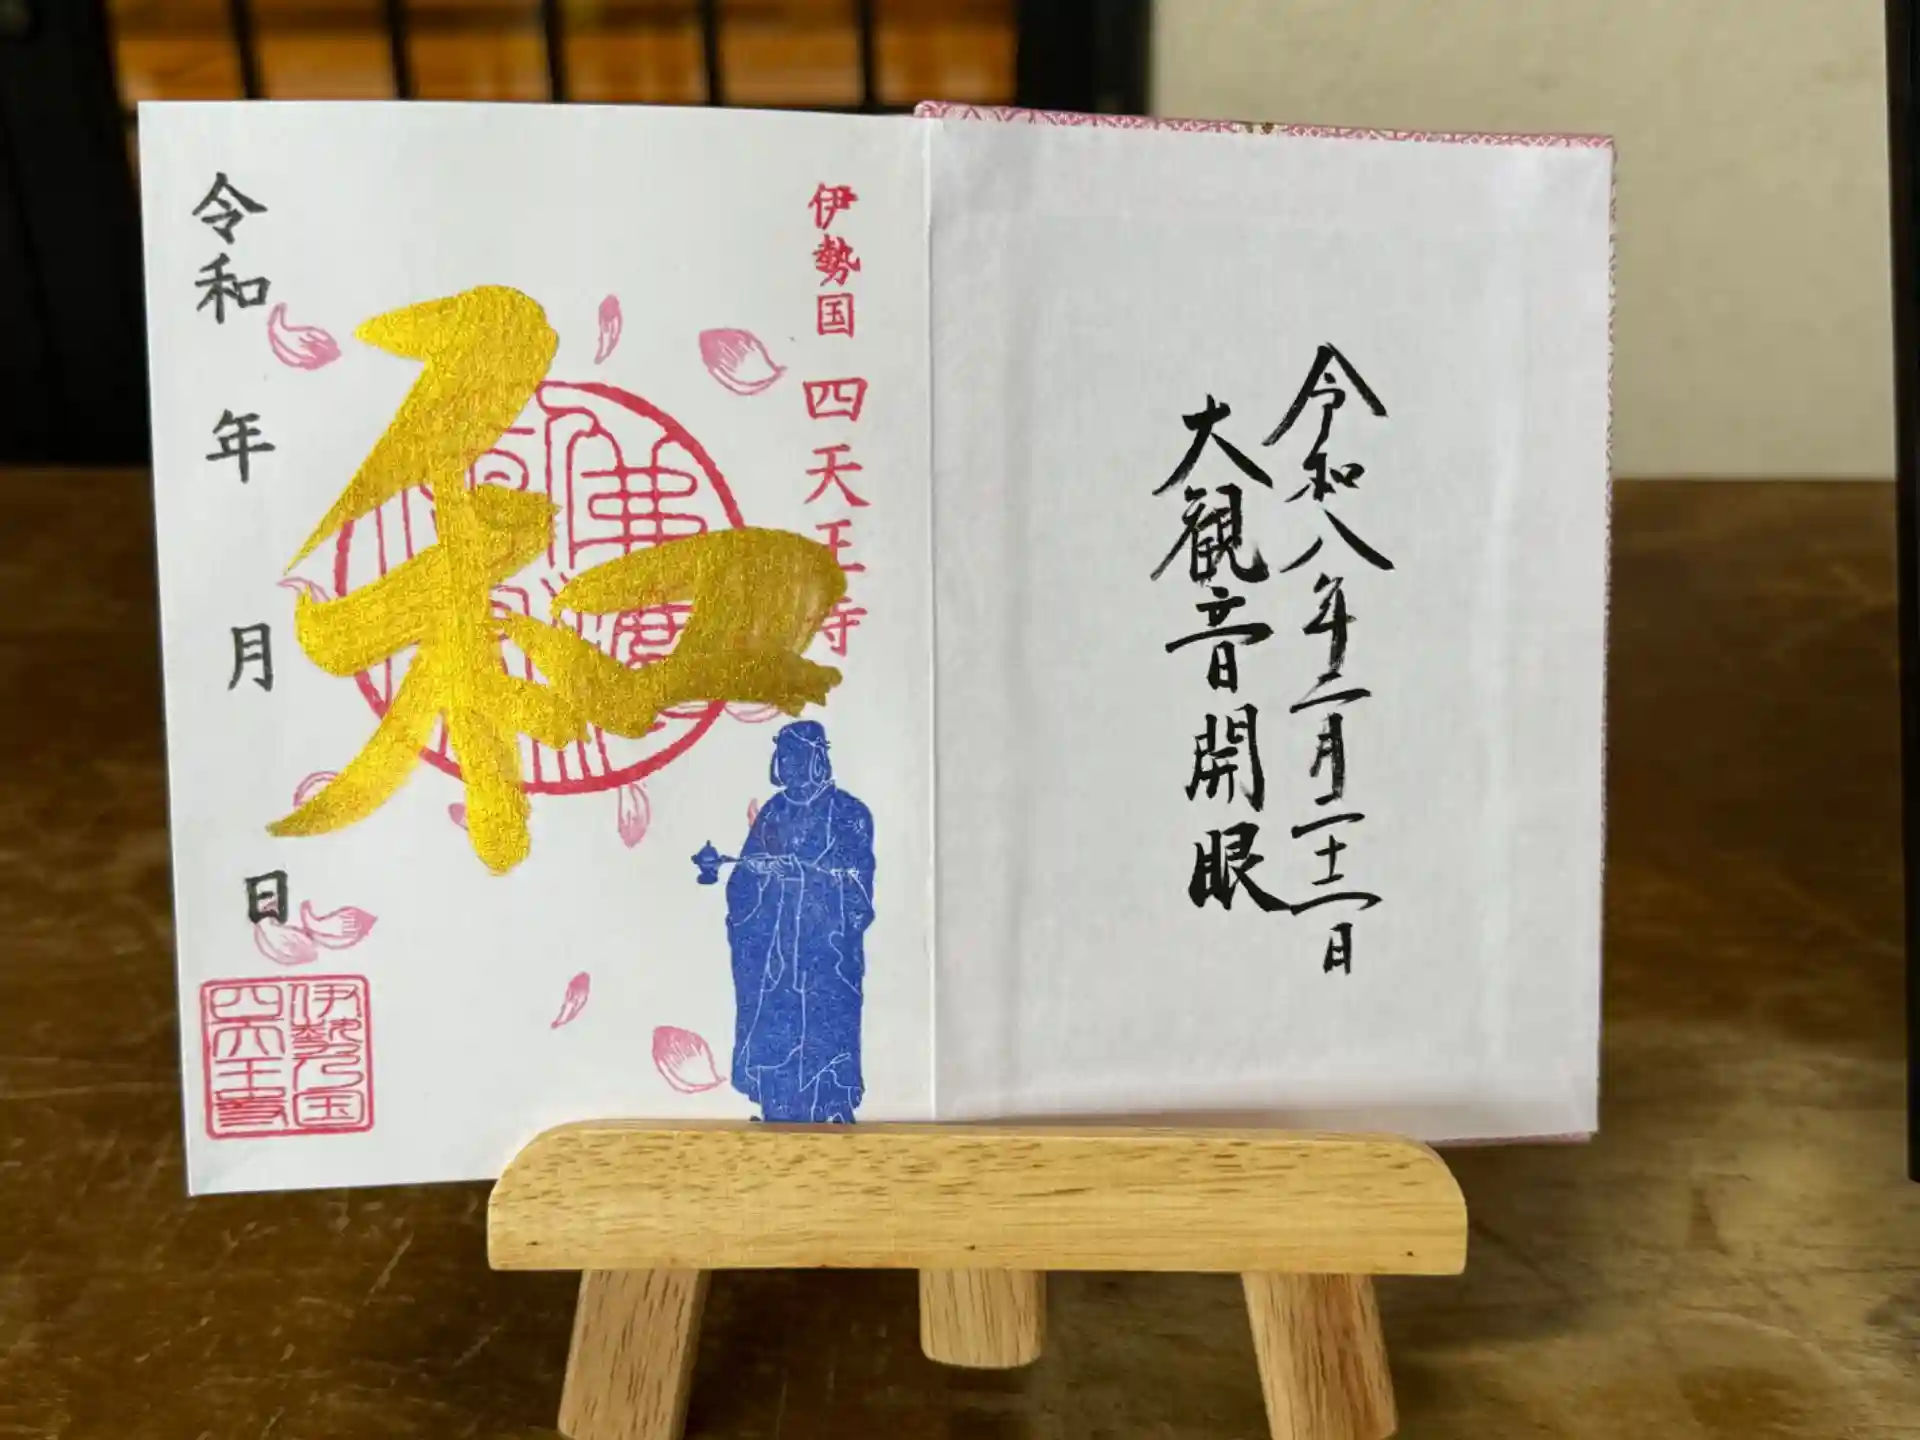 令和八年二月二十二日
大観音開眼
伊勢国 四天王寺
和
令和 年 月 日
伊勢乃国
四天王寺